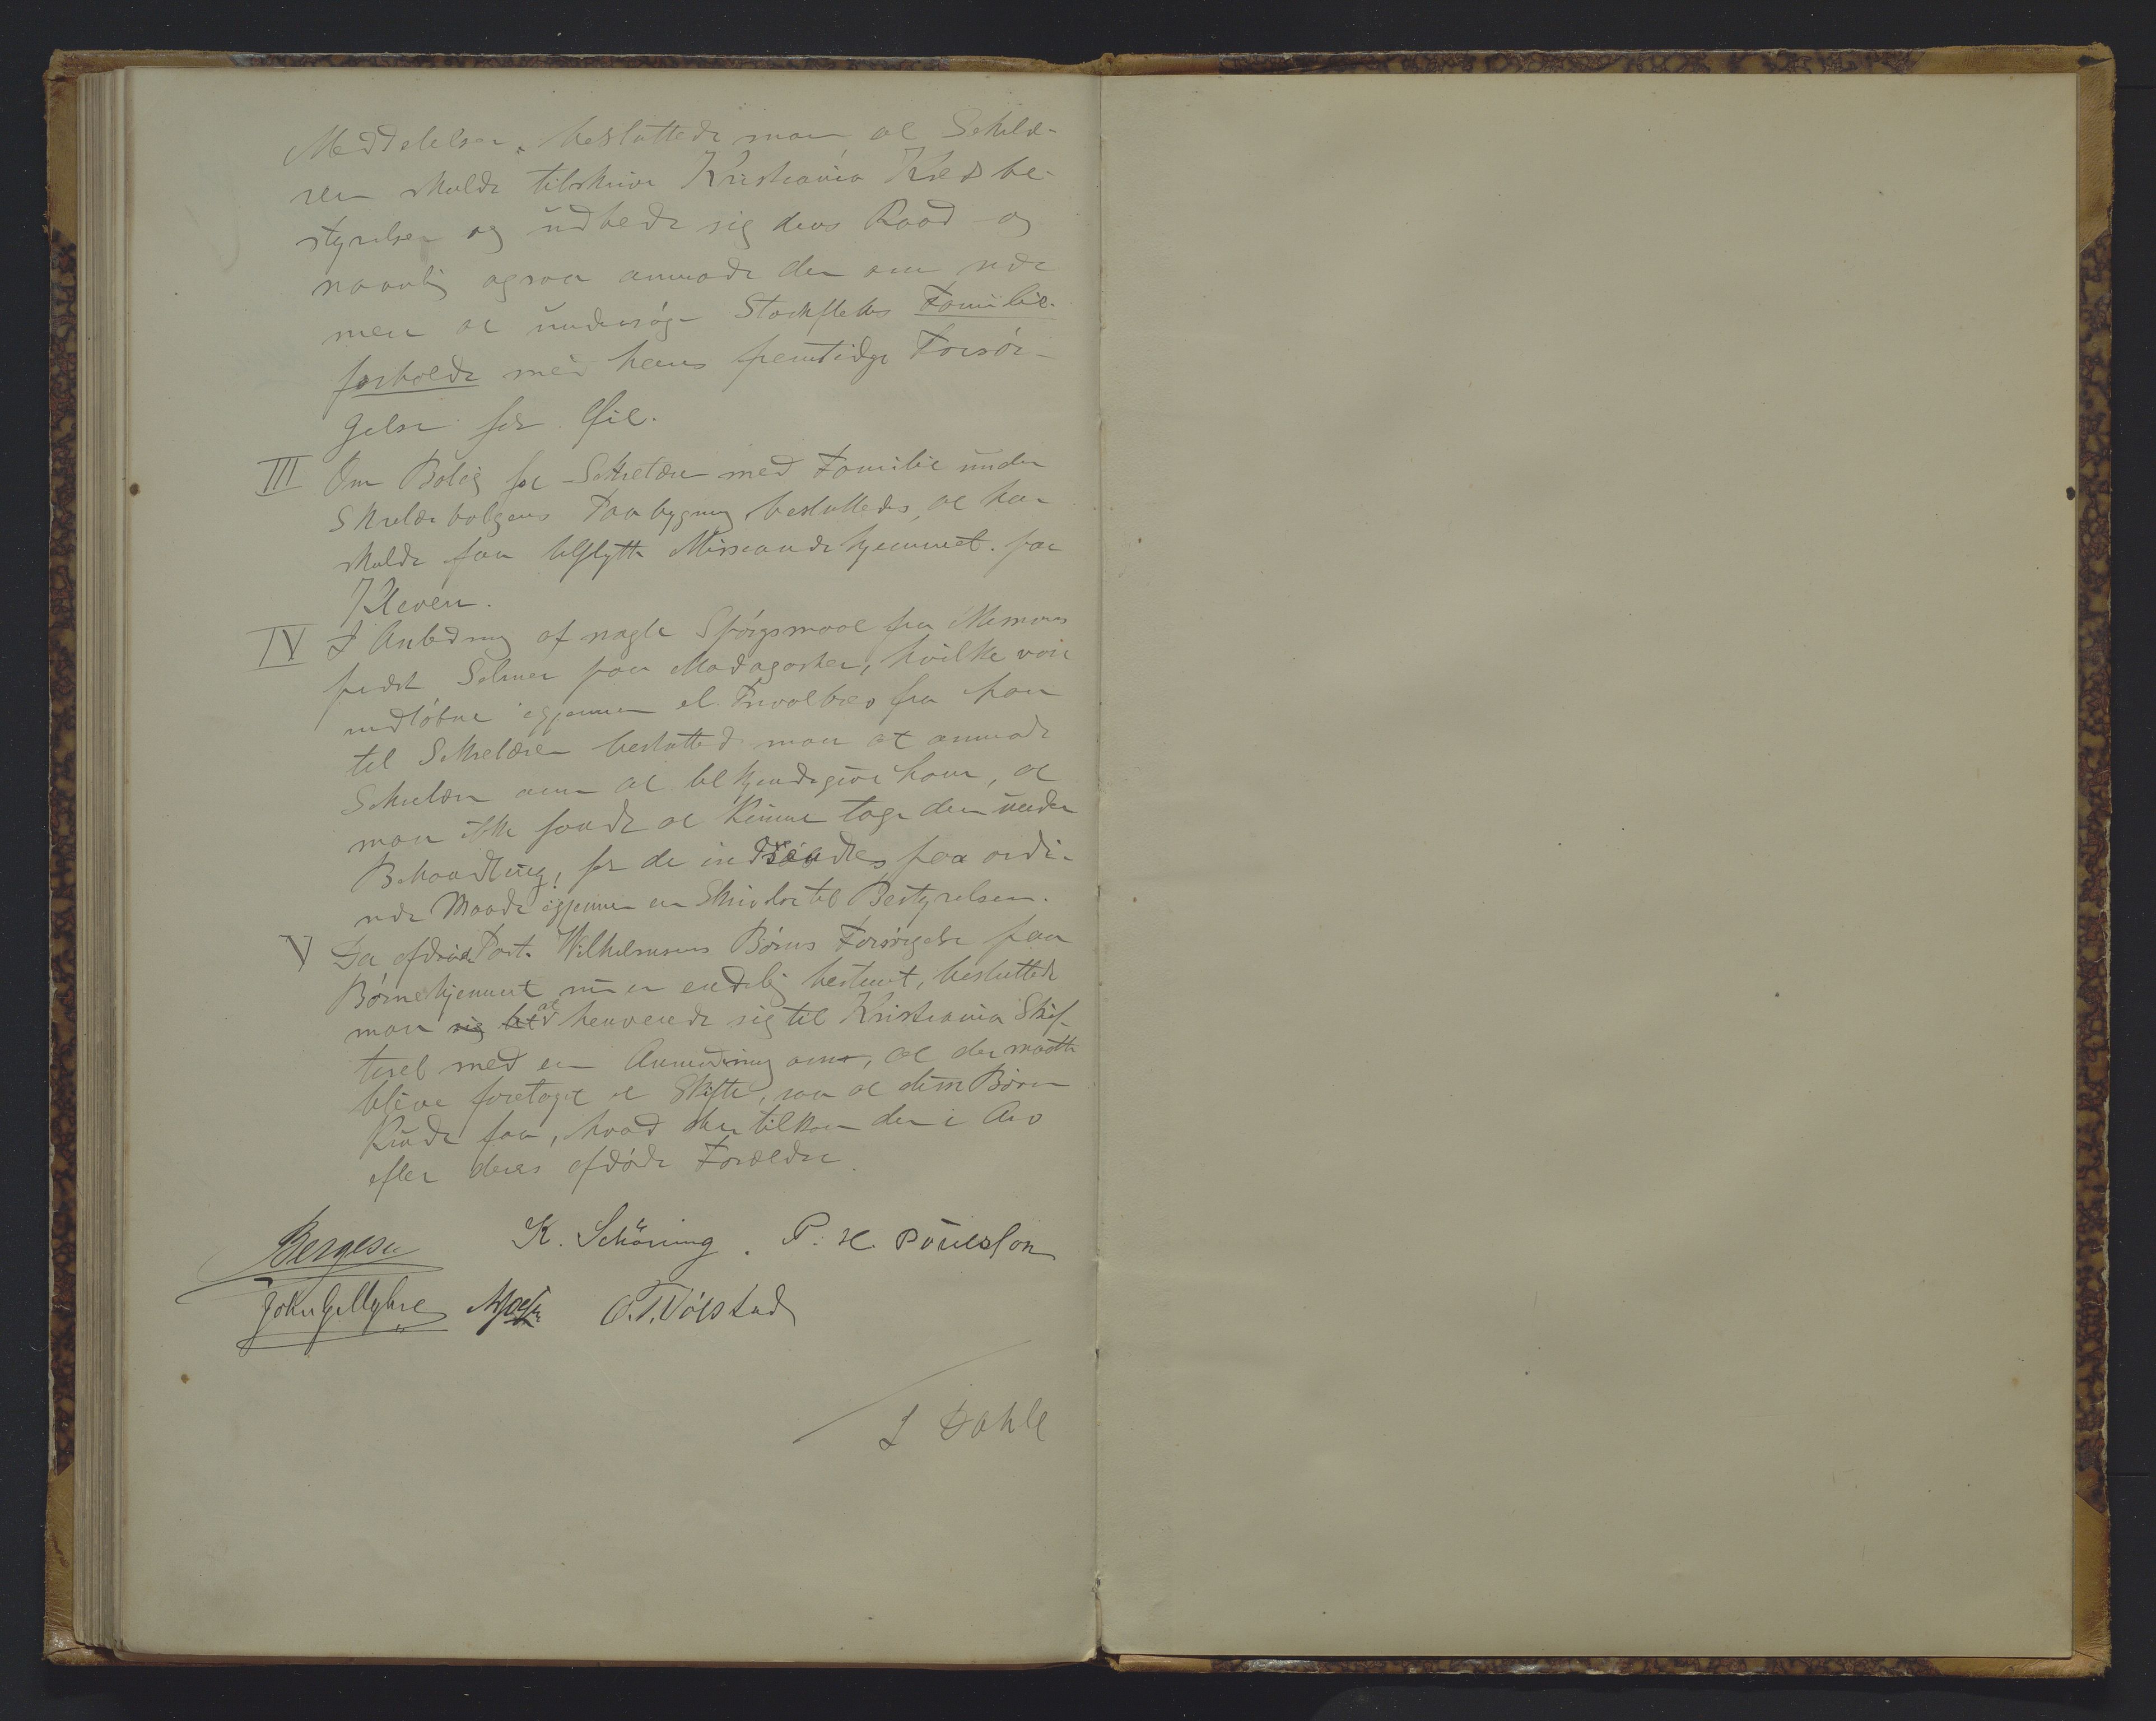 Meddelelser, besluttede man at Sekretæ-
ren skulde tilskrive Kristiania Kredsbe-
styrelse og udbede sig dens Raad og
navnlig ogsaa anmode den om nær-
mere at undersøge Stockfleths Familie-
forholde med hans fremtidige Forsør-
gelse for Øie.
III Om Bolig for Sekretæren med Familie under
Skolebolgens Paabygning besluttedes, at han
skulde faa tilflytte Missionshjemmet paa
Kleven.
IV I Anledning af nogle Spørgsmaal fra Missions
prest Selmer paa Madagaskar, hvilke vare
indløbne igjennem et Privatbrev fra ham
til Sekretæren besluttede man at anmode
Sekretæren om at tilkjendegive ham, at
man ikke fandt at kunne tage dem under
Behandling, før de indsendtes paa ordi-
nær Maade igjennem en Skrivelse til Bestyrelsen.
V Da afdøde Past. Vilhelmsens Børns Forsørgelse paa
Børnehjemmet nu er endelig bestemt, besluttede
man sig at henvende sig til Kristiania Skif-
teret med en Anmodning om, at der maatte
blive foretaget et Skifte, saa at disse Børn
kunde faa, hvad der tilkom dem i Arv
efter deres afdøde Forældre.
Bergesen K. Schöning. P. H. Poulsson
John G. Myhre O. T. Vølstad
L Dahle